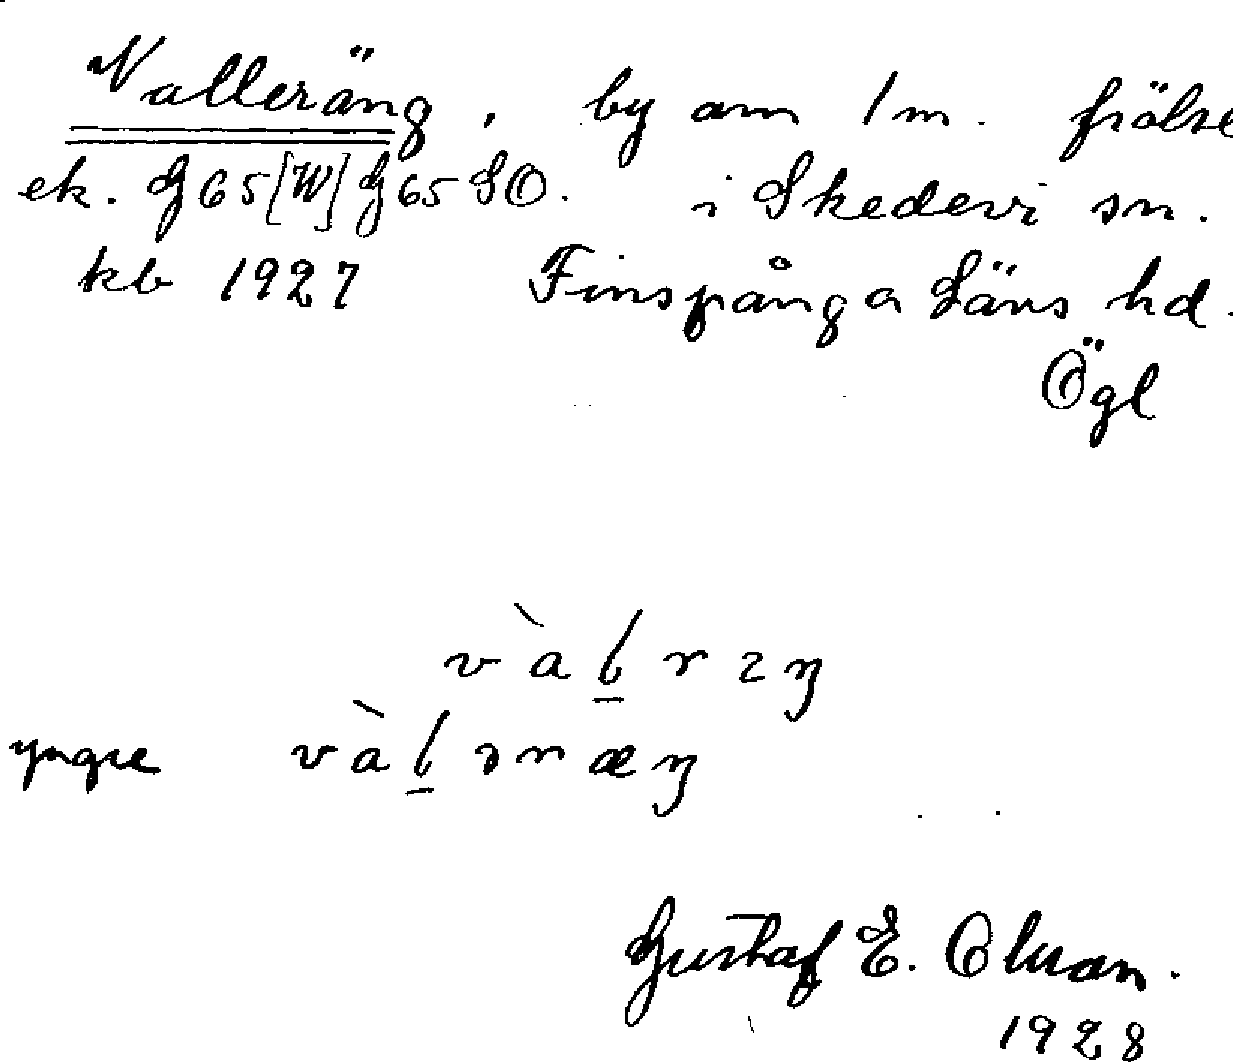 Valleräng, by om 1 m. frälse
ek. G 65 [W] G 65 SO. i Skedevi sn.
kb 1927 Finspånga Läns hd.
Ögl
vàlrɿŋ
yngre vàləræŋ
Gustaf E. Olsson.
1928